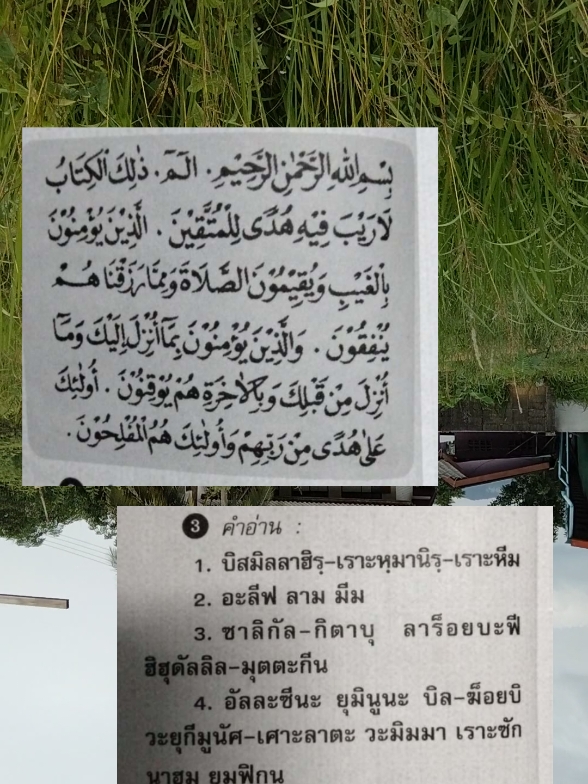 بِسْمِ اللهِ الرَّحْمٰنِ الرَّحِيْمِ . الٓمٓ . ذٰلِكَ الْكِتَابُ
لَا رَيْبَ فِيْهِ هُدًى لِلْمُتَّقِيْنَ . الَّذِيْنَ يُؤْمِنُوْنَ
بِالْغَيْبِ وَيُقِيْمُوْنَ الصَّلَاةَ وَمِمَّا رَزَقْنَا هُمْ
يُنْفِقُوْنَ . وَالَّذِيْنَ يُؤْمِنُوْنَ بِمَآ أُنْزِلَ إِلَيْكَ وَمَآ
أُنْزِلَ مِنْ قَبْلِكَ وَبِالْاٰخِرَةِ هُمْ يُوْقِنُوْنَ . أُولٰئِكَ
عَلٰى هُدًى مِنْ رَبِّهِمْ وَأُولٰئِكَ هُمُ الْمُفْلِحُوْنَ .
3 คำอ่าน :
1. บิสมิลลาฮิรฺ-เราะหฺมานิรฺ-เราะหีม
2. อะลีฟ ลาม มีม
3. ซาลิกัล-กิตาบุ ลาร็อยบะฟี
ฮิฮุดัลลิล-มุตตะกีน
4. อัลละซีนะ ยุมินูนะ บิล-ฆ็อยบิ
วะยุกีมูนัศ-เศาะลาตะ วะมิมมา เราะซัก
นาฮุม ยุมฟิกูน